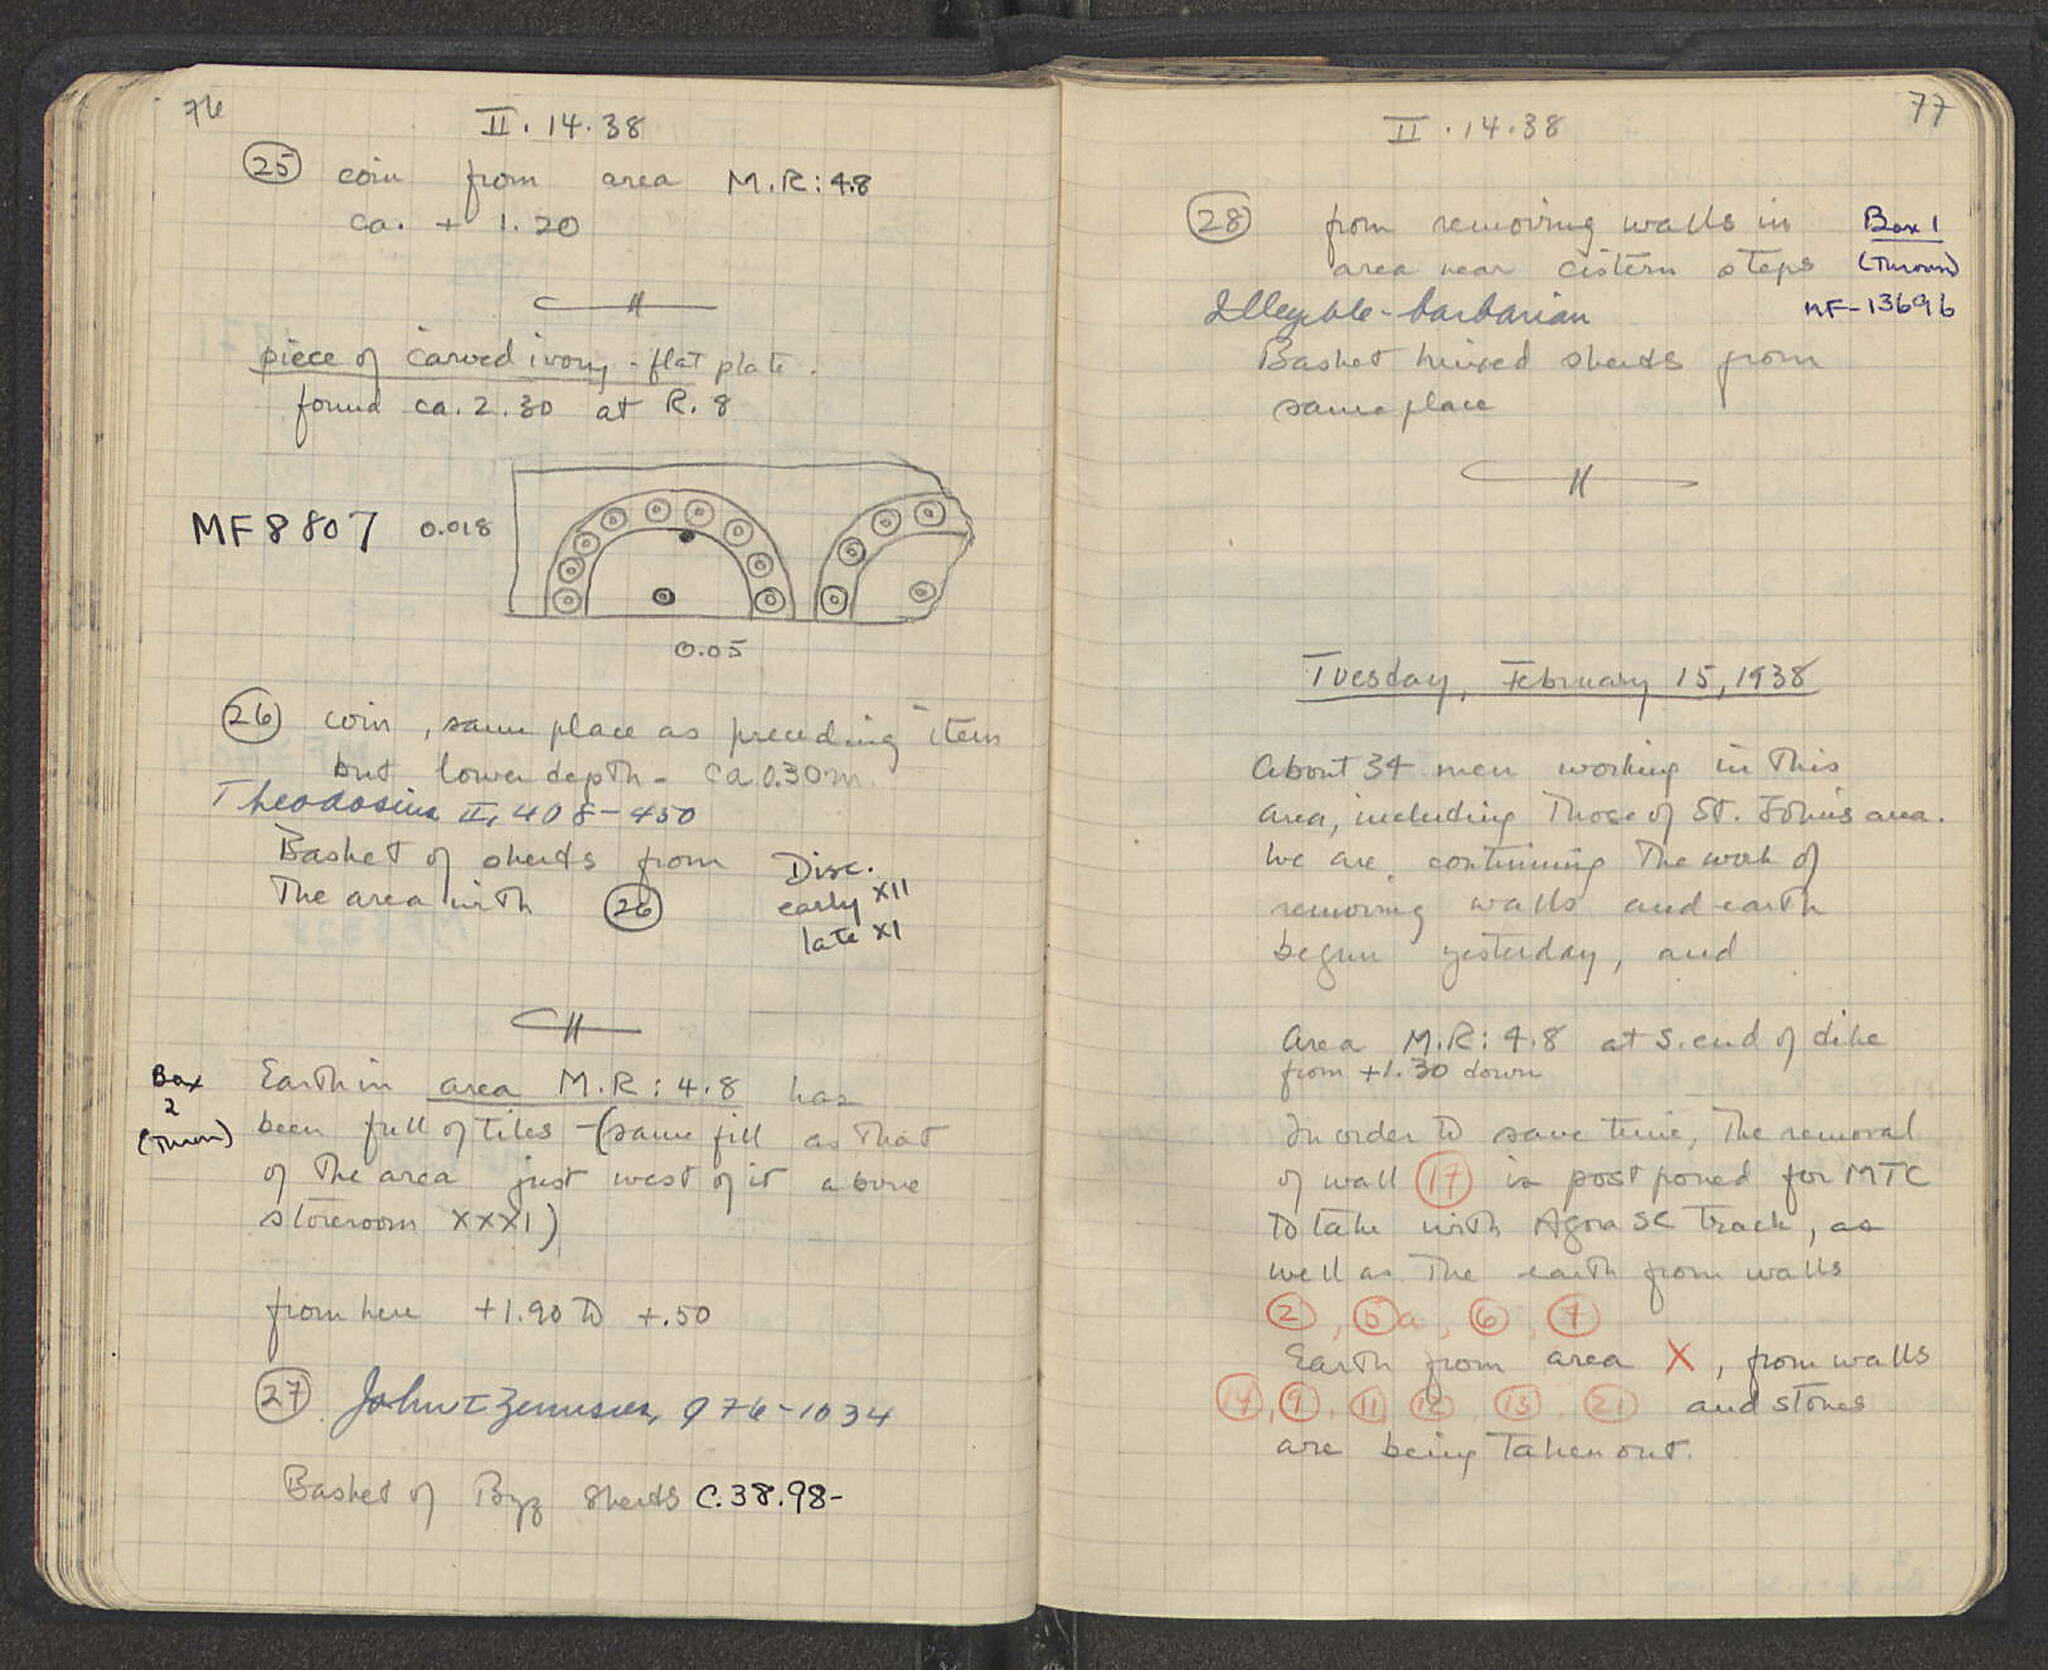 76
II. 14. 38
25 coin from area M.R: 4.8
ca. + 1.20
piece of carved ivory - flat plate.
found ca. 2.30 at R. 8
MF 8807 0.018
0.05
26 coin, same place as preceding item
but lower depth - ca 0.30 m.
Theodosius II, 408-450
Basket of sherds from
The area with 26
Disc.
early XII
late XI
Box
2
(Thrown)
Earth in area M.R: 4.8 has
been full of tiles - (same fill as that
of the area just west of it above
storeroom XXXI)
from here +1.90 to +.50
27 John I Zimisces, 976-1034
Basket of Byz sherds C.38.98-
77
II. 14.38
28 from removing walls in
area near cistern steps
Box 1
(Thrown)
MF-13696
Illegible - barbarian
Basket mixed sherds from
same place
Tuesday, February 15, 1938
About 34 men working in this
area, including those of St. John's area.
We are continuing the work of
removing walls and earth
begun yesterday, and
Area M.R: 4.8 at S. end of dike
from +1.30 down
In order to save time, the removal
of wall 17 is postponed for MTC
to take with Agora SC track, as
well as the earth from walls
2, 5a, 6, 7
Earth from area X, from walls
14, 9, 11, 12, 13, 21 and stones
are being taken out.